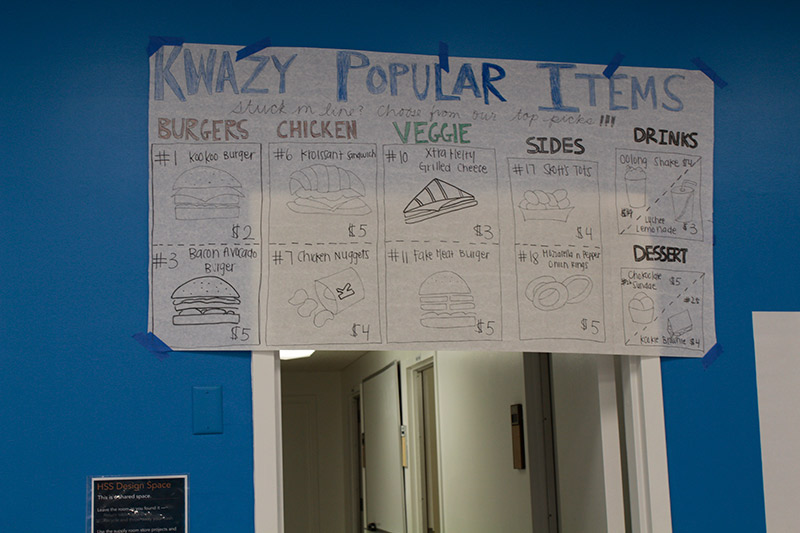 KWAZY POPULAR ITEMS
stuck in line? Choose from our top picks!!!
BURGERS
#1 Kookoo Burger
$2
#3 Bacon Avocado Burger
$5
CHICKEN
#6 Kroissant Sandwich
$5
#7 Chicken Nuggets
$4
VEGGIE
#10 Xtra Helry
Grilled Cheese
$3
#11 Fake Meat Burger
$5
SIDES
#17 Skott's Tots
$4
#18 Mozzarella n Pepper
Onion Rings
$5
DRINKS
Oolong Shake $4
#19
Lychee
Lemonade $3
DESSERT
Chokolate
Sundae $5
Kookie $4
HSS Design Space
This is a shared space.
Leave the room as you found it
Use the supply room store projects and